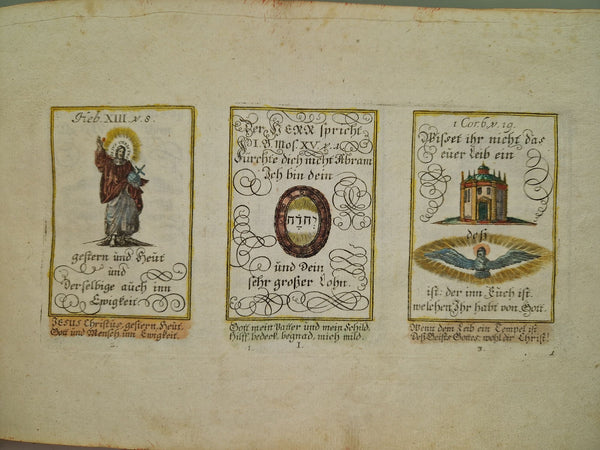 Heb. XIII. v. 8.
gestern und Heüt
und
Derselbige auch inn
Ewigkeit.
JESUS Christus, gestern, Heüt,
Gott und Mensch inn Ewigkeit.
2.
Der HERR spricht
I. B Mos. XV. v. 1.
Fürchte dich nicht Abram
Ich bin dein
יהוה
und Dein
sehr großer Lohn.
Gott mein Vatter und mein Schild,
Hilff, bedeck, begnad, mich mild.
1.
1 Cor. 6 v. 19.
Wisset ihr nicht das
euer Leib ein
deß
ist. der inn Euch ist.
welchen Ihr habt von Gott.
Wenn dem Leib ein Tempel ist
Deß Geists Gottes, wohl dir Christ!
3.